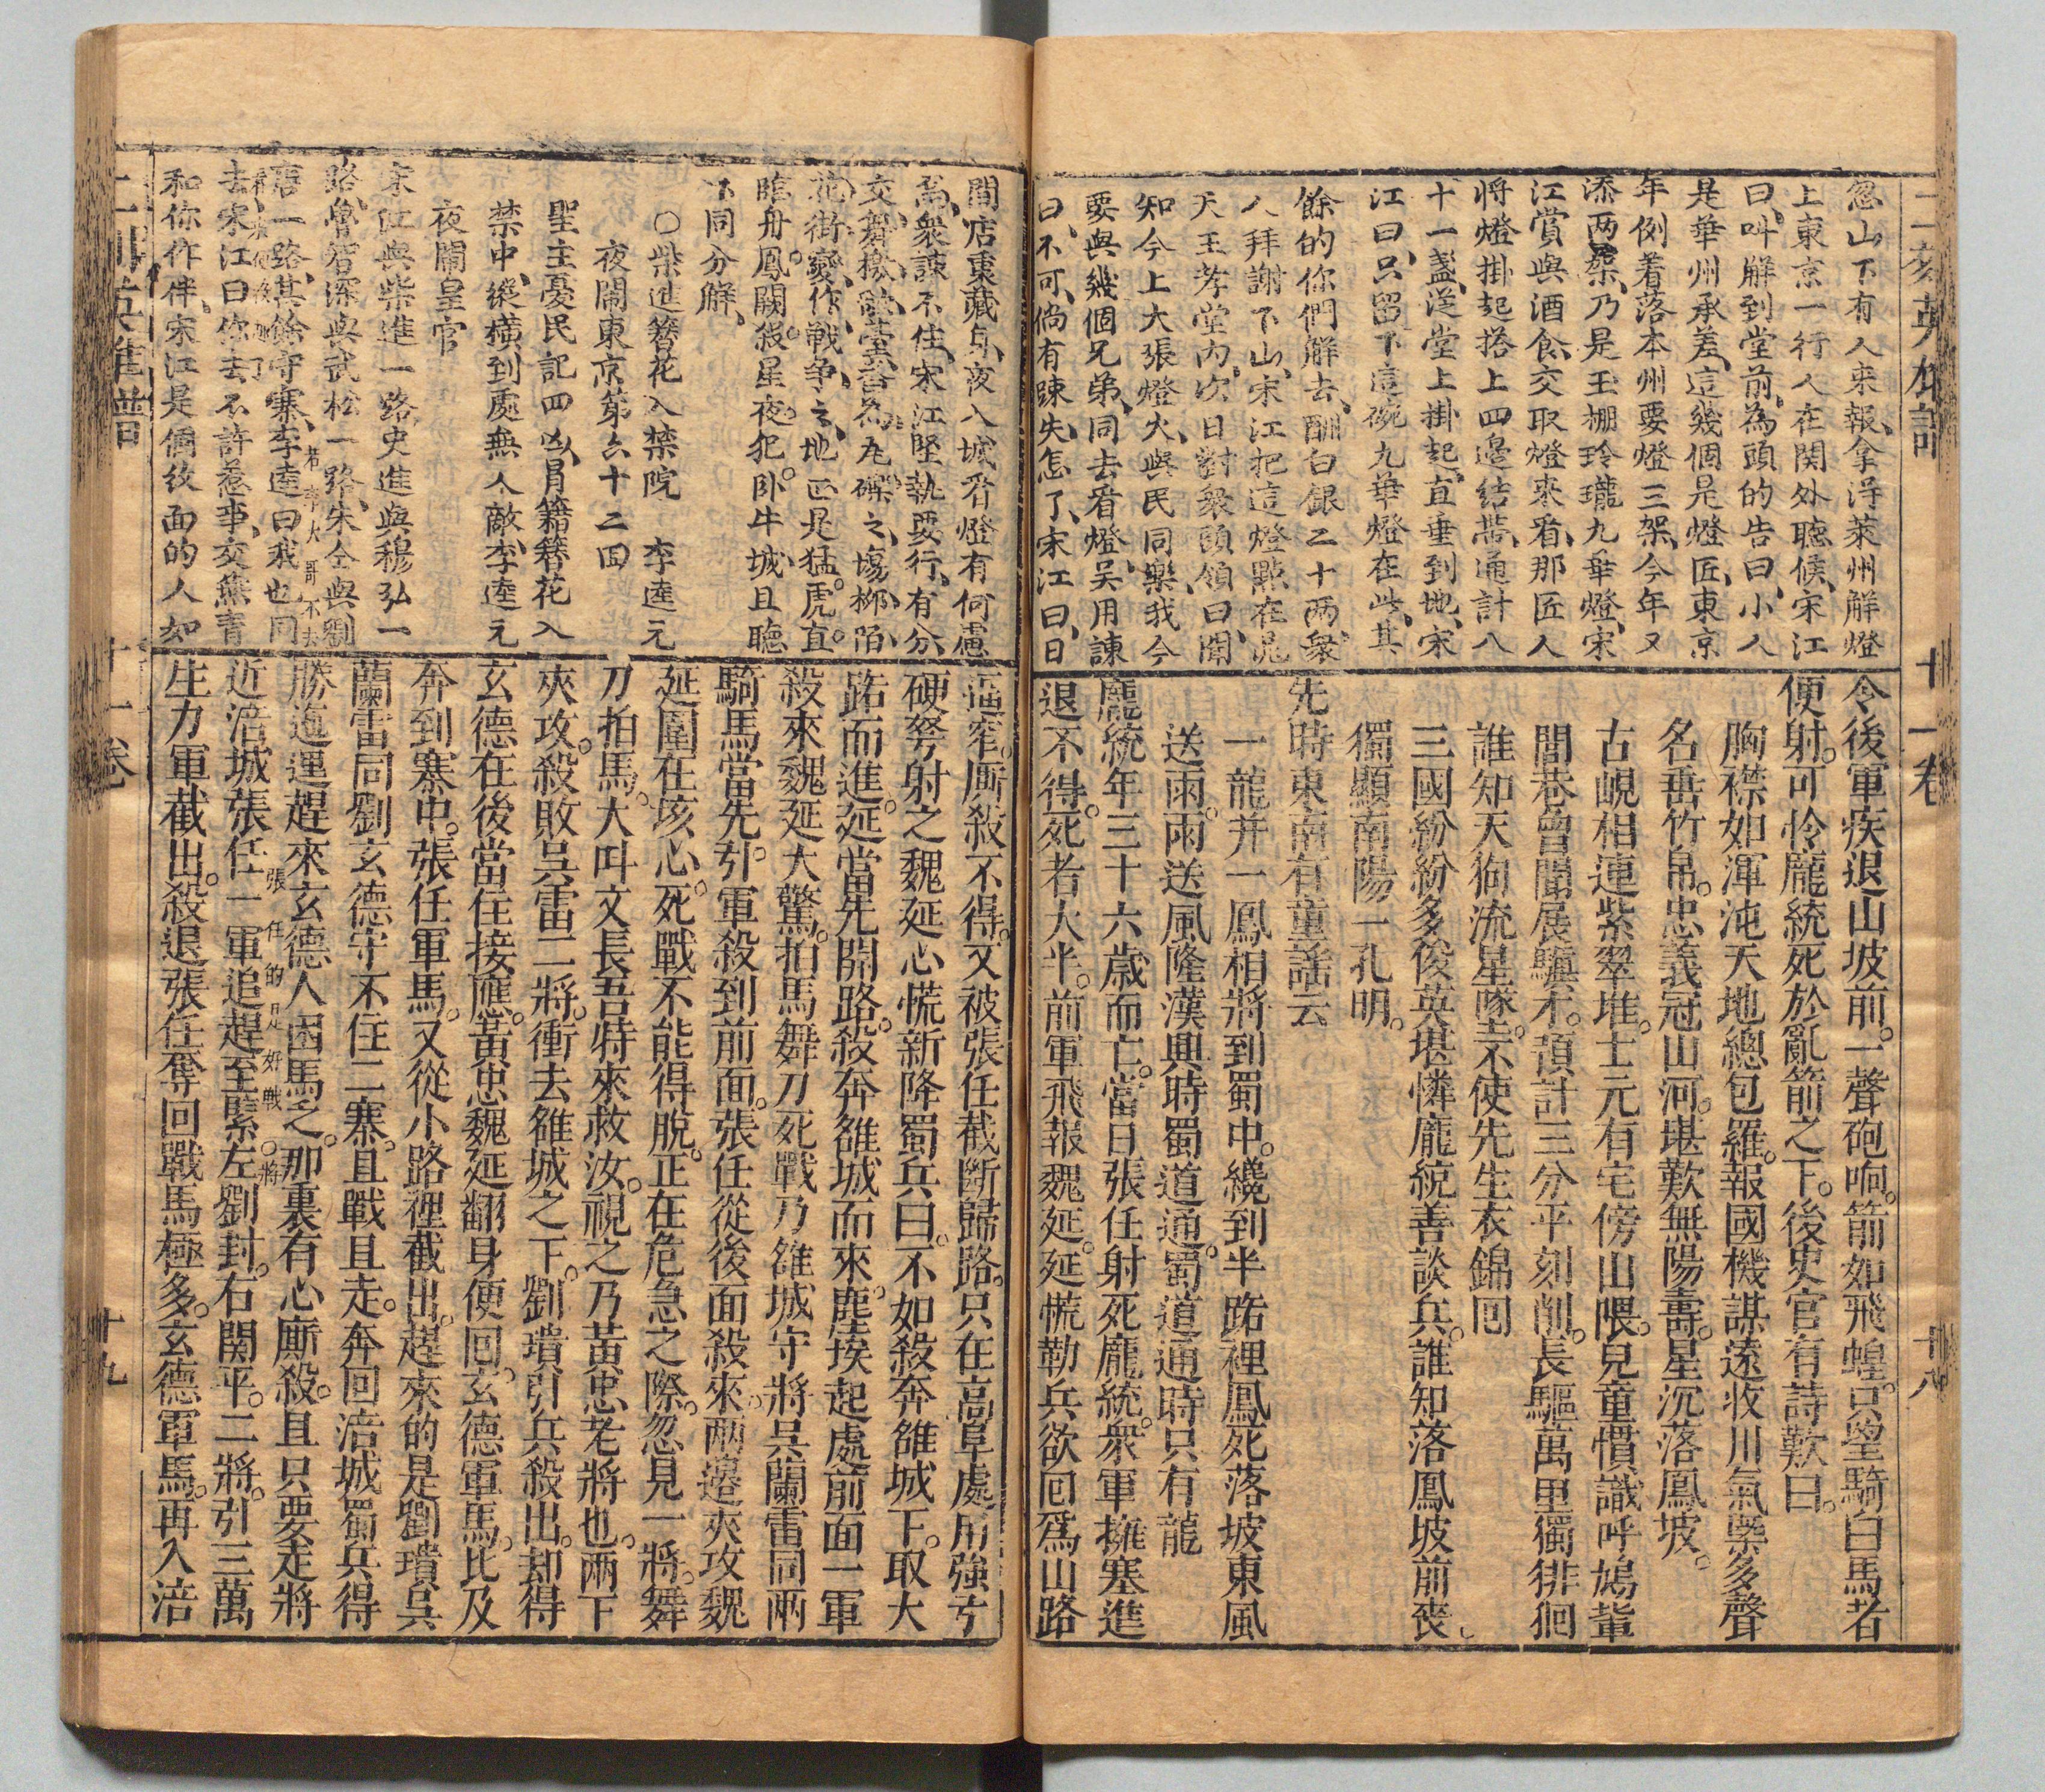 二刻英雄譜
十一卷
十八
忽山下有人来報、拿得萊州解燈
上東京一行人在関外聽候、宋江
曰、呌解到堂前、為頭的告曰、小人
是華州承差、這幾個是燈匠、東京
年例着落本州要燈三架、今年又
添两架、乃是玉棚玲瓏九華燈、宋
江賞與酒食、交取燈來看、那匠人
將燈掛起搭上四邊結帶、通計八
十一盞、從堂上掛起、直垂到地、宋
江曰、只留下這碗九華燈在此、其
餘的你們解去、酬白銀二十两、衆
人拜謝下山、宋江把這燈點在晁
天王孝堂内、次日對衆頭領曰、聞
知今上大張燈火、與民同樂、我今
要與幾個兄弟、同去看燈、吴用諫
曰、不可、倘有踈失、怎了、宋江曰、日
令後軍疾退山坡前。一聲砲响。箭如飛蝗。只望騎白馬者
便射。可怜龐統死於亂箭之下。後史官有詩歎曰。
胸襟如渾沌天地總包羅。報國機謀遠收川氣槩多聲
名垂竹帛。忠義冠山河。堪歎無陽壽。星沉落鳳坡。
古峴相連紫翠堆。士元有宅傍山隈。兒童慣識呼鳩軰
閭巷曾聞展驥才。預計三分平刻削。長驅萬里獨徘徊
誰知天狗流星墜。不使先生衣錦囘
三國紛紛多俊英堪憐龐統善談兵。誰知落鳳坡前喪。
獨顯南陽一孔明。
先時東南有童謡云
一龍并一鳳相將到蜀中。纔到半路裡鳳死落坡東風
送雨。雨送風隆漢興時蜀道通。蜀道通時只有龍
龐統年三十六歲而亡。當日張任射死龐統。衆軍擁塞進
退不得。死者大半。前軍飛報魏延。延慌勒兵欲囘爲山路
間店東藏身、夜入城看燈有何慮
焉、衆諫不住、宋江堅執要行、有分
交、舞榭歌臺、畨為瓦礫之塲、柳陌
花街、變作戰争之地、正是猛虎直
臨丹鳳闕。殺星夜犯卧牛城、且聽
下同分觧、
○柴進簪花入禁院　李逵元
夜閙東京第六十二囬
聖主憂民記四凶、冒籍簪花入
禁中、縱横到處無人敵、李逵元
夜閙皇宫
宋江與柴進一路、史進與穆弘一
路、魯智深與武松一路、朱仝與劉
唐一路、其餘守寨、李逵曰、我也同
若李大哥不去
去、宋江曰、你去不許惹事、交燕青
和你作伴、宋江是個紋面的人、如
逼窄。厮殺不得。又被張任截斷歸路。只在高阜處用強弓
硬弩射之魏延心慌新降蜀兵曰。不如殺奔雒城下。取大
路而進。延當先開路。殺奔雒城而來。塵埃起處前面一軍
殺來魏延大驚。拍馬舞刀死戰乃雒城守將吴蘭雷同兩
騎馬當先引。軍殺到前面。張任從後面殺來。兩邊夾攻魏
延圍在垓心。死戰不能得脫。正在危急之際。忽見一將。舞
刀拍馬。大叫文長吾特來救汝。視之乃黃忠老將也。兩下
夾攻。殺敗吴雷二將。衝去雒城之下。劉璝引兵殺出。却得
玄德在後當住接應。黃忠魏延翻身便回。玄德軍馬。比及
奔到寨中。張任軍馬。又從小路裡截出。趕來的是劉璝吴
蘭雷同劉玄德守不住二寨。且戰且走。奔回涪城蜀兵得
勝迤邐趕來玄德人困馬乏。那裏有心厮殺。且只要走將
張任的是好戰將
近涪城張任一軍追趕至緊。左劉封。右関平。二將。引三萬
生力軍截出。殺退張任奪回戰馬極多。玄德軍馬。再入涪
二刻英雄譜
十一卷
十九